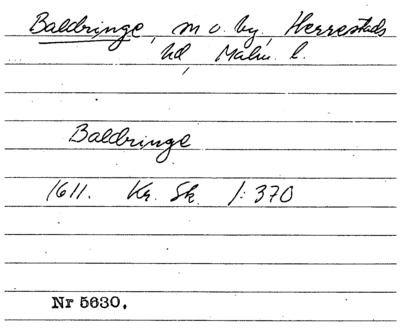 Baldringe, m o. by, Herrestads
hd, Malm. l.
Baldringe
1611. Kr. Sk. 1:370
Nr 5630.